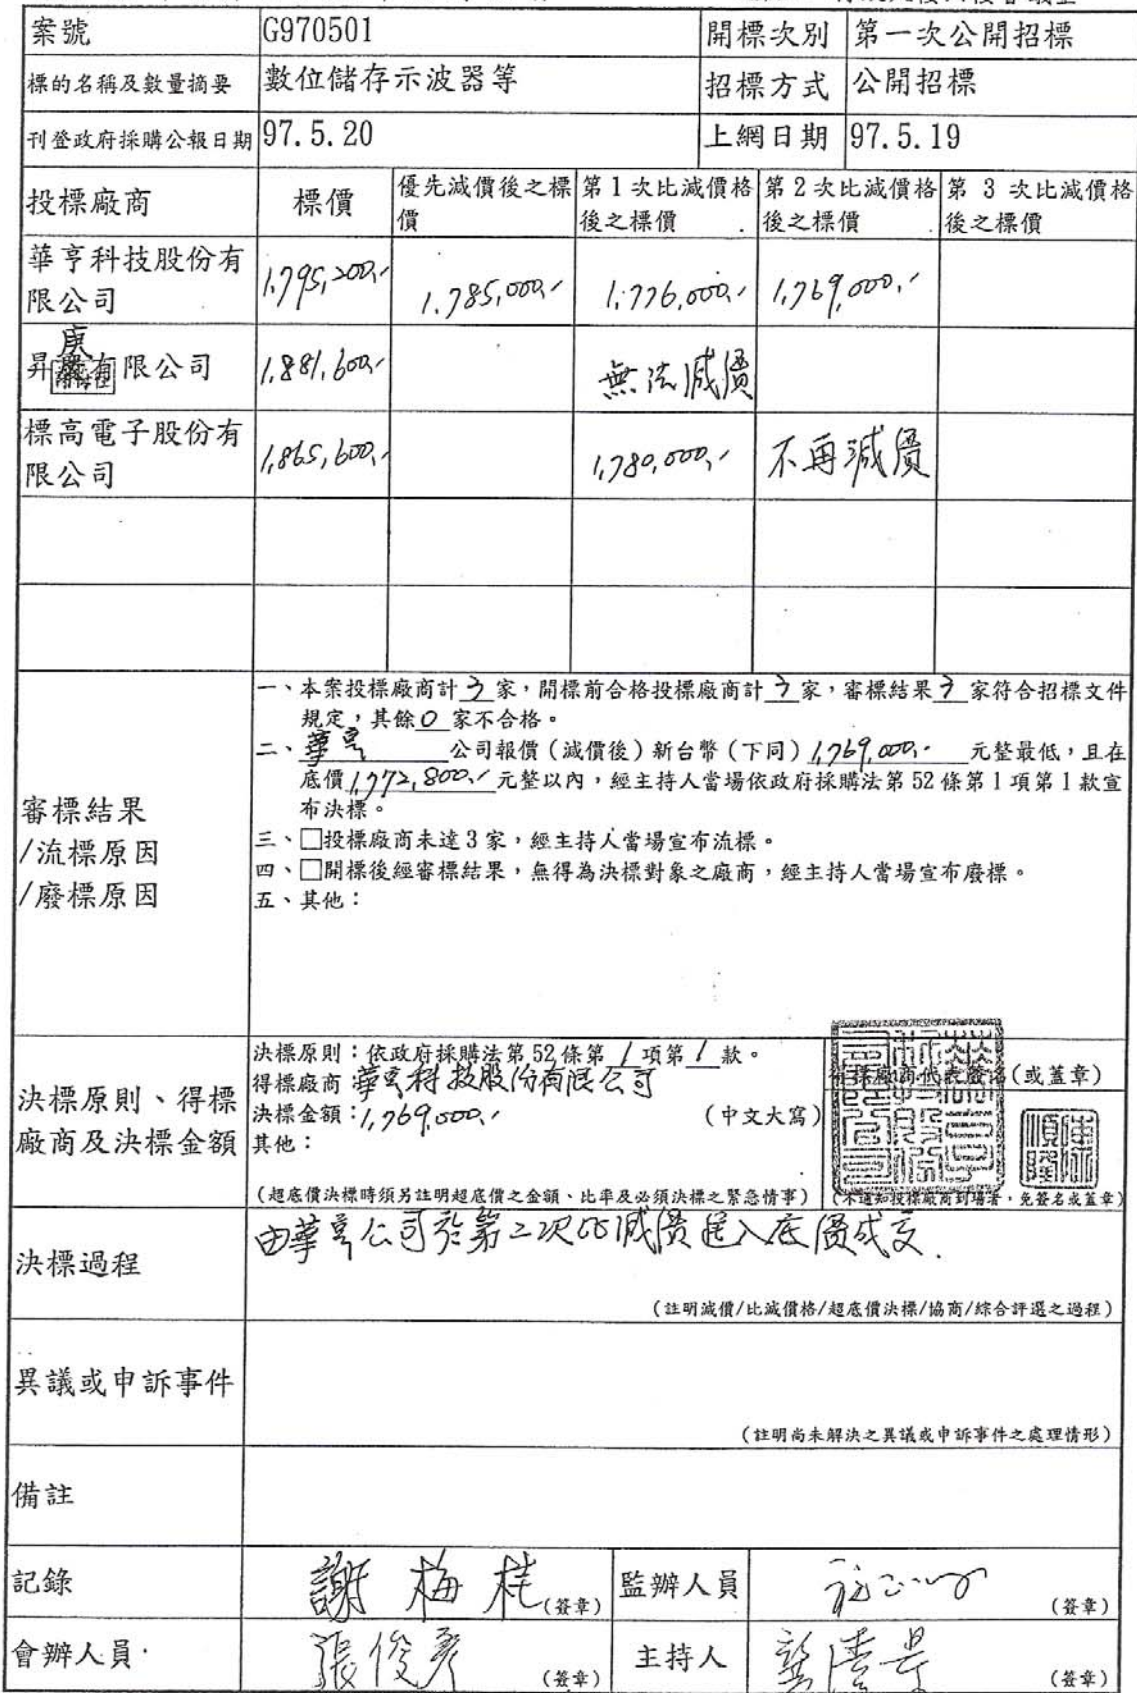 案號 G970501 開標次別 第一次公開招標
標的名稱及數量摘要 數位儲存示波器等 招標方式 公開招標
刊登政府採購公報日期 97.5.20 上網日期 97.5.19
投標廠商 標價 優先減價後之標價 第1次比減價格後之標價 第2次比減價格後之標價 第 3 次比減價格後之標價
華亨科技股份有
限公司 1,795,200.- 1,785,000.- 1,776,000.- 1,769,000.-
昇庚有限公司 1,881,600.- 無法減價
標高電子股份有
限公司 1,865,600.- 1,780,000.- 不再減價
審標結果
/流標原因
/廢標原因
一、本案投標廠商計 3 家，開標前合格投標廠商計 3 家，審標結果 3 家符合招標文件
規定，其餘 0 家不合格。
二、華亨 公司報價（減價後）新台幣（下同）1,769,000.- 元整最低，且在
底價 1,772,800.- 元整以內，經主持人當場依政府採購法第52條第1項第1款宣
布決標。
三、□投標廠商未達3家，經主持人當場宣布流標。
四、□開標後經審標結果，無得為決標對象之廠商，經主持人當場宣布廢標。
五、其他：
決標原則、得標
廠商及決標金額
決標原則：依政府採購法第52條第 1 項第 1 款。
得標廠商 華亨科技股份有限公司
決標金額：1,769,000.- （中文大寫）
其他：
（超底價決標時須另註明超底價之金額、比率及必須決標之緊急情事）
得標廠商代表簽名(或蓋章)
（未通知投標廠商到場者，免簽名或蓋章）
決標過程
由華亨公司於第二次比減價進入底價成交.
（註明減價/比減價格/超底價決標/協商/綜合評選之過程）
異議或申訴事件
（註明尚未解決之異議或申訴事件之處理情形）
備註
記錄 謝梅桂 (簽章) 監辦人員 (簽章)
會辦人員 張俊彥 (簽章) 主持人 (簽章)